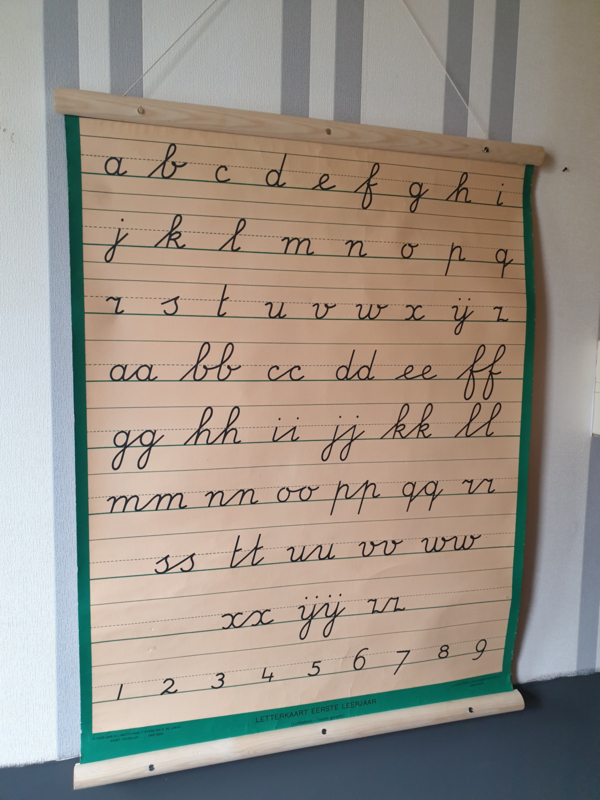 a b c d e f g h i
j k l m n o p q
r s t u v w x ÿ z
aa bb cc dd ee ff
gg hh ii jj kk ll
mm nn oo pp qq rr
ss tt uu vv ww
xx ÿÿ zz
1 2 3 4 5 6 7 8 9
LETTERKAART EERSTE LEERJAAR